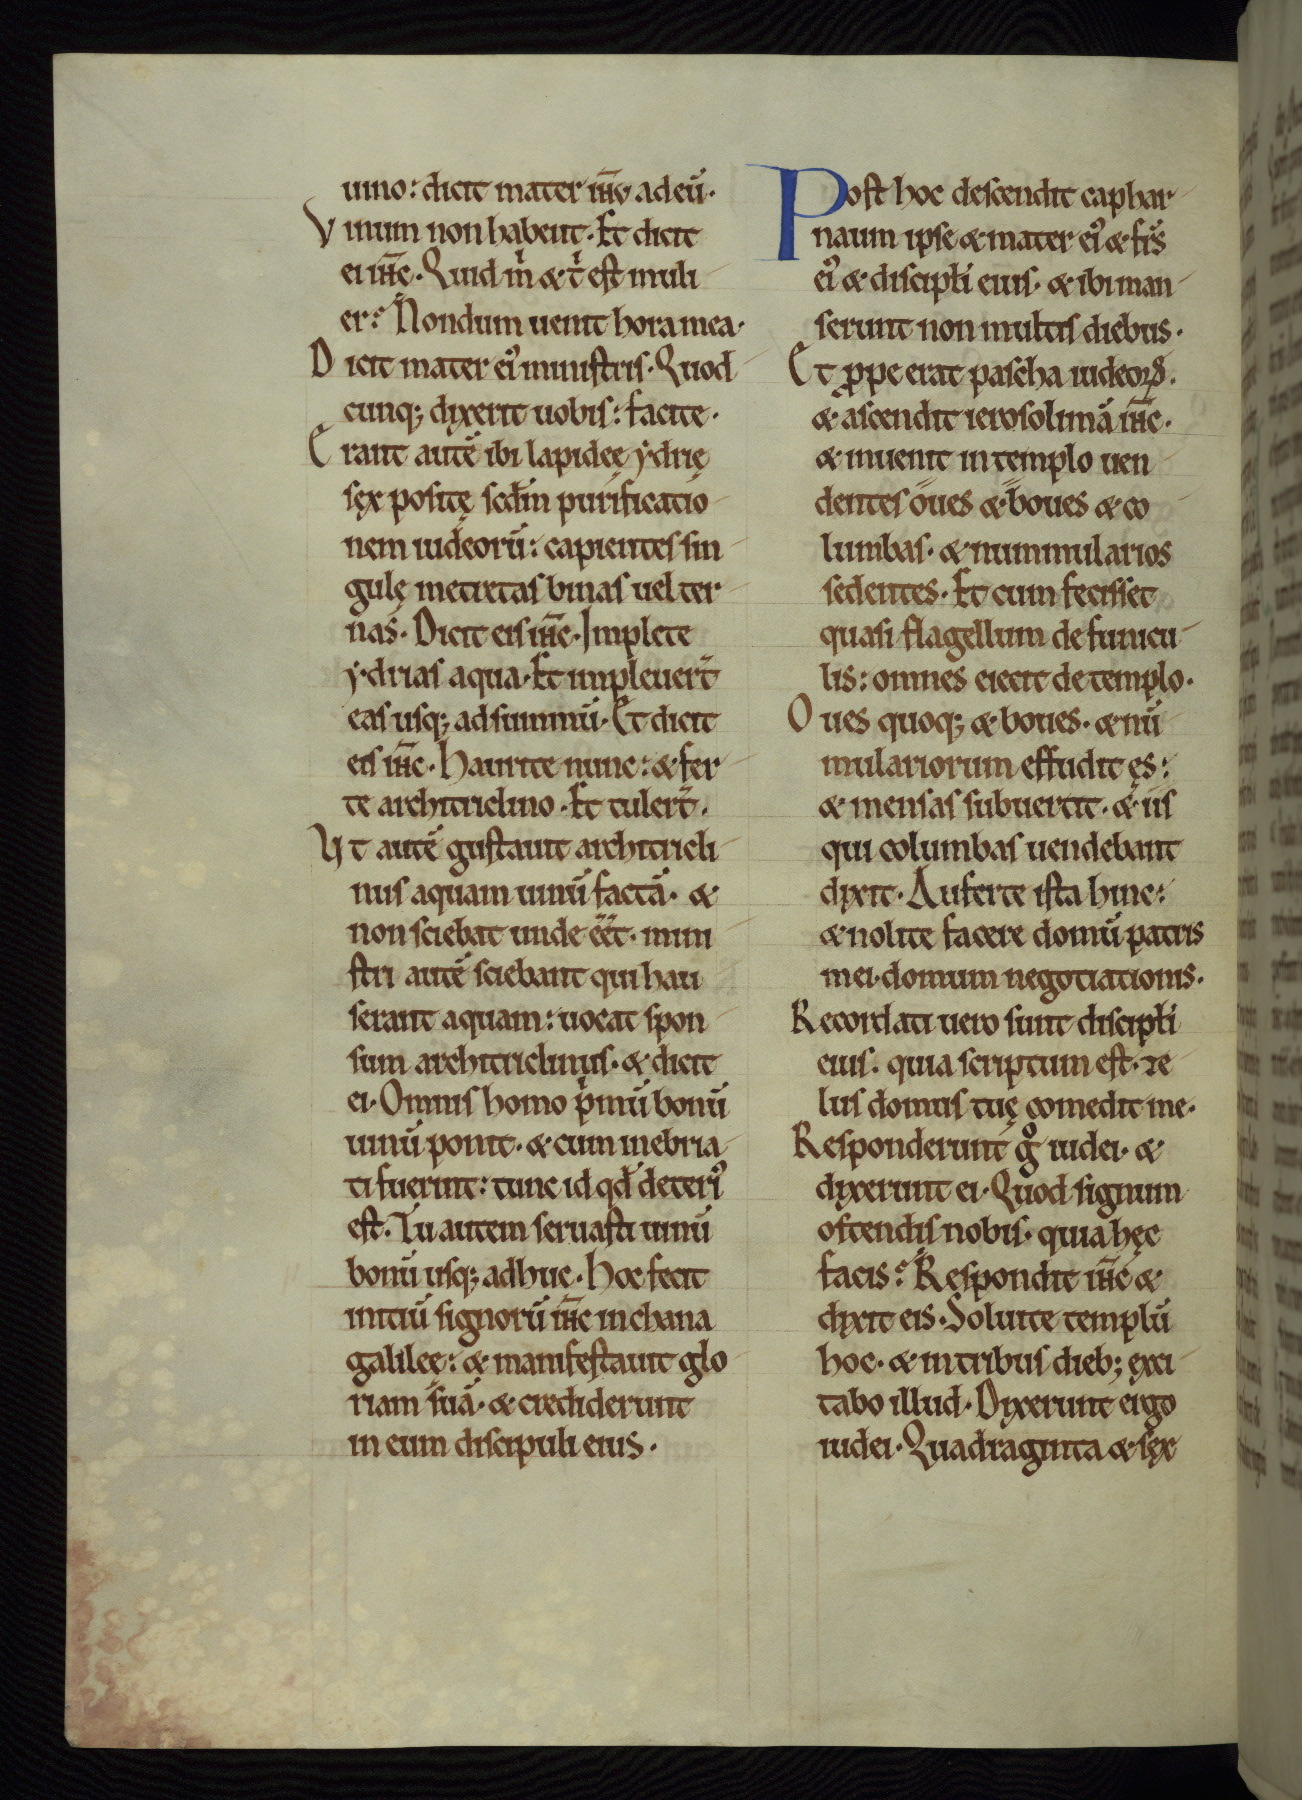 uino: dicit mater ih̅u ad eu̅.
Vinum non habent. Et dicit
ei ih̅c. Quid m̍ & t̍ est muli
er? Nondum uenit hora mea.
Dicit mater ei᷒ ministris. Quod
cunq; dixerit uobis: facite.
Erant aute̅ ibi lapideę ydrię
sex positę scd̅m purificatio
nem iudeoru̅: capientes sin
gulę metretas binas uel ter
nas. Dicit eis ih̅c. Implete
ydrias aqua. Et impleuer̅t
eas usq; ad summu̅. Et dicit
eis ih̅c. Haurite nunc: & fer
te architriclino. Et tuler̅t.
Vt aute̅ gustauit architricli
nus aquam uinu̅ facta̅. &
non sciebat unde e̅e̅t. mini
stri aute̅ sciebant qui hau
serant aquam: uocat spon
sum architriclinus. & dicit
ei. Omnis homo p̍mu̅ bonu̅
uinu̅ ponit. & cum inebria
ti fuerint: tunc id qd̅ deteri᷒
est. Tu autem seruasti uinu̅
bonu̅ usq; adhuc. Hoc fecit
initiu̅ signoru̅ ih̅c in chana
galileę: & manifestauit glo
riam sua̅. & crediderunt
in eum discipuli eius.
Post hoc descendit caphar
naum ipse & mater ei᷒ & fr̅s
ei᷒ & discipl̅i eius. & ibi man
serunt non multis diebus.
Et ꝓpe erat pascha iudeoꝝ.
& ascendit ierosolima̅ ih̅c.
& inuenit in templo uen
dentes oues & boues & co
lumbas. & nummularios
sedentes. Et cum fecisset
quasi flagellum de funicu
lis: omnes eiecit de templo.
Oues quoq; & boues. & nu̅
mulariorum effudit ęs:
& mensas subuertit. & iis
qui columbas uendebant
dixit. Auferte ista hinc:
& nolite facere domu̅ patris
mei. domum negotiationis.
Recordati uero sunt discipl̅i
eius. quia scriptum est. ze
lus domus tuę comedit me.
Responderunt gͦ iudei. &
dixerunt ei. Quod signum
ostendis nobis. quia hęc
facis? Respondit ih̅c &
dixit eis. Soluite templu̅
hoc. & in tribus dieb; exci
tabo illud. Dixerunt ergo
iudei. Quadraginta & sex